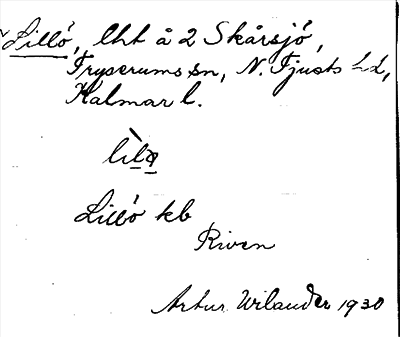 Lillö, lht å 2 Skårsjö,
Fryserums sn, N. Tjusts hd,
Kalmar l.
Lillö kb
Riven
Artur Wilander 1930